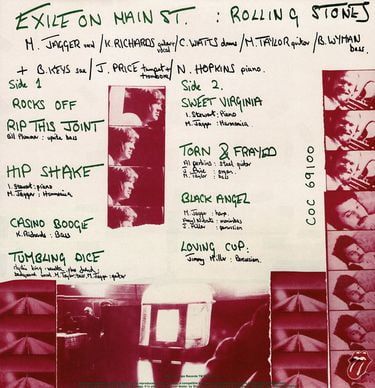 EXILE ON MAIN ST. : ROLLING STONES
M. JAGGER vocal / K. RICHARDS guitar vocal / C. WATTS drums / M. TAYLOR guitar / B. WYMAN bass.
+ B. KEYS sax / J. PRICE trumpet & trombone / N. HOPKINS piano.
Side 1
ROCKS OFF
RIP THIS JOINT
Bill Plummer : upright bass
HIP SHAKE
I. Stewart : piano
M. Jagger : Harmonica
CASINO BOOGIE
K. Richards : Bass
TUMBLING DICE
M. Taylor : bass, M. Jagger : guitar
Side 2.
SWEET VIRGINIA
I. Stewart : Piano
M. Jagger : Harmonica
TORN & FRAYED
Al Perkins : steel guitar
J. Price : organ.
M. Taylor : bass
BLACK ANGEL
M. Jagger : harp
marimbas
J. Miller : percussion
LOVING CUP :
Jimmy Miller : Percussion.
COC 69100